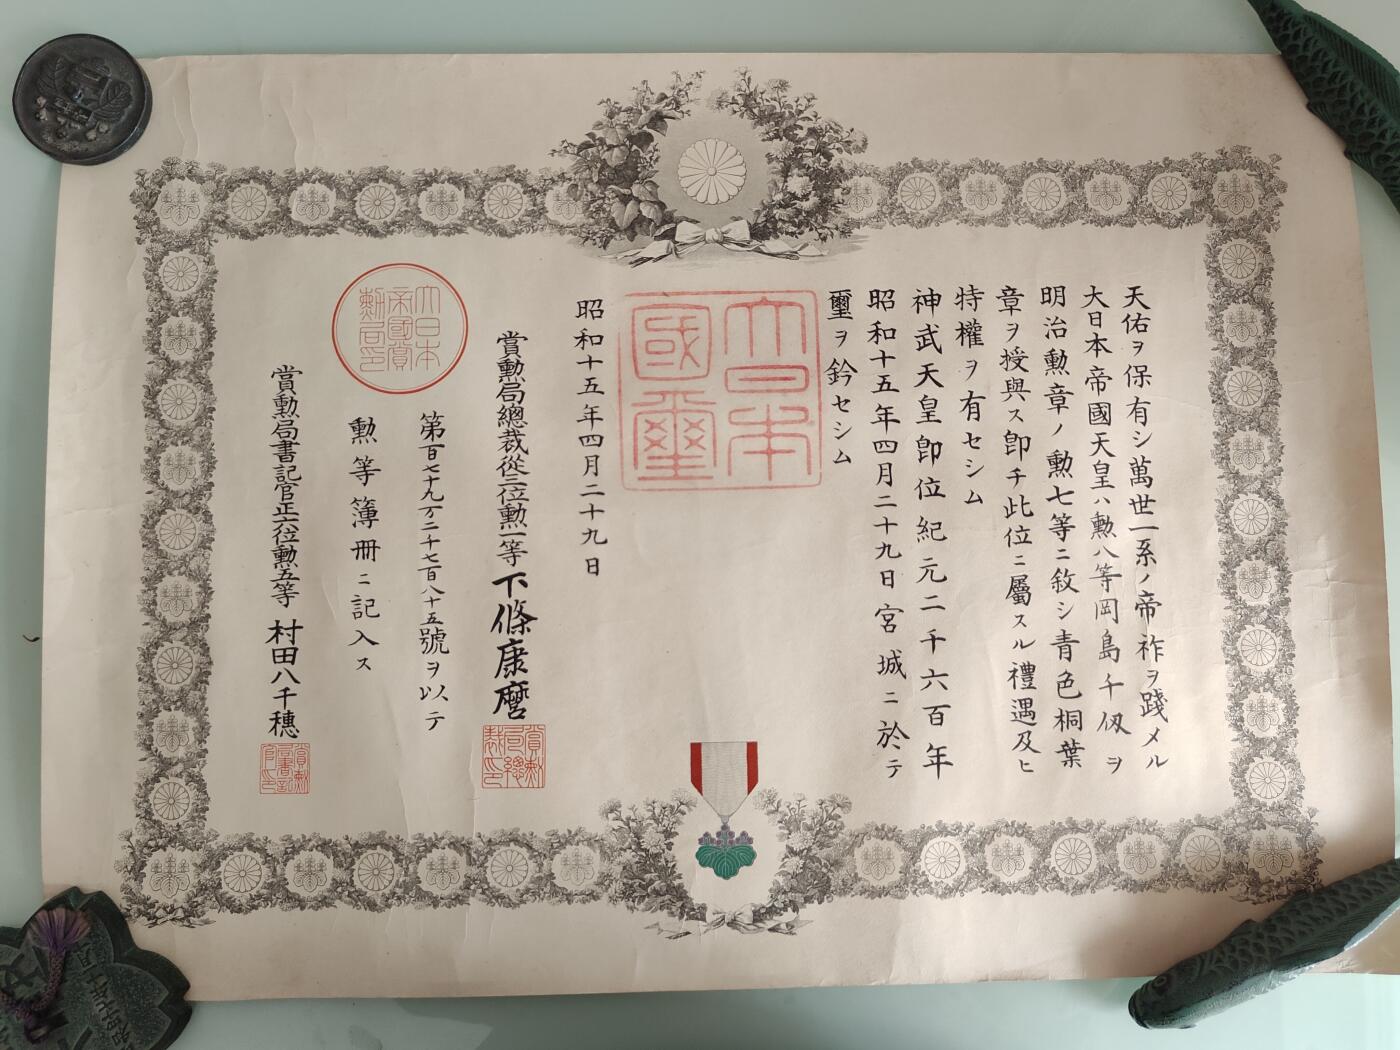 天佑ヲ保有シ萬世一系ノ帝祚ヲ踐メル
大日本帝國天皇ハ勲八等岡島千仭ヲ
明治勲章ノ勲七等ニ敘シ青色桐葉
章ヲ授與ス即チ此位ニ屬スル禮遇及ヒ
特權ヲ有セシム
神武天皇即位紀元二千六百年
昭和十五年四月二十九日宮城ニ於テ
璽ヲ鈐セシム
大日本
國璽
昭和十五年四月二十九日
賞勲局總裁從三位勲一等下條康麿
賞勲局總裁印
第百七十九万二千七百八十五號ヲ以テ
勲等簿冊ニ記入ス
大日本帝國賞勲局印
賞勲局書記官正六位勲五等村田八千穗
賞勲局書記官印